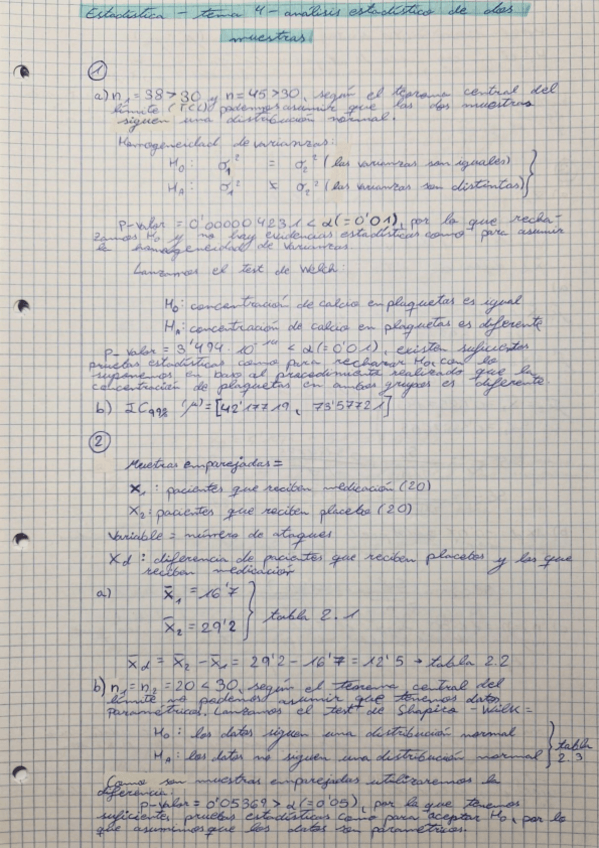 Estadística - tema 4 - análisis estadístico de dos
muestras
1
a) n1 = 38 > 30 y n = 45 > 30, según el teorema central del
límite (TCL) podemos asumir que las dos muestras
siguen una distribución normal.
Homogeneidad de varianzas:
H0: σ1² = σ2² (las varianzas son iguales)
HA: σ1² ≠ σ2² (las varianzas son distintas)
P-valor = 0'000004231 < α(=0'01), por lo que recha-
zamos H0 y no hay evidencias estadísticas como para asumir
la homogeneidad de varianzas
Lanzamos el test de Welch:
H0: concentración de calcio en plaquetas es igual
HA: concentración de calcio en plaquetas es diferente
P-valor = 3'494 · 10 < α(=0'01), existen suficientes
pruebas estadísticas como para rechazar H0, con lo
suponemos en base al procedimiento realizado que la
concentración de plaquetas en ambos grupos es diferente
b) IC99% (μ) = [42'17719, 73'57721]
2
Muestras emparejadas =
X1: pacientes que reciben medicación (20)
X2: pacientes que reciben placebo (20)
Variable = número de ataques
Xd: diferencia de pacientes que reciben placebos y los que
reciben medicación
a) x̄1 = 16'7
x̄2 = 29'2 } tabla 2.1
x̄d = x̄2 - x̄1 = 29'2 - 16'7 = 12'5 → tabla 2.2
b) n1 = n2 = 20 < 30, según el teorema central del
límite no podemos asumir que tenemos datos
paramétricos. Lanzamos el test de Shapiro - Wilk =
H0: los datos siguen una distribución normal
HA: los datos no siguen una distribución normal } tabla
2.3
Como son muestras emparejadas utilizaremos la
diferencia:
P-valor = 0'05369 > α(=0'05), por lo que tenemos
suficientes pruebas estadísticas como para aceptar H0, por lo
que asumimos que los datos son paramétricos.